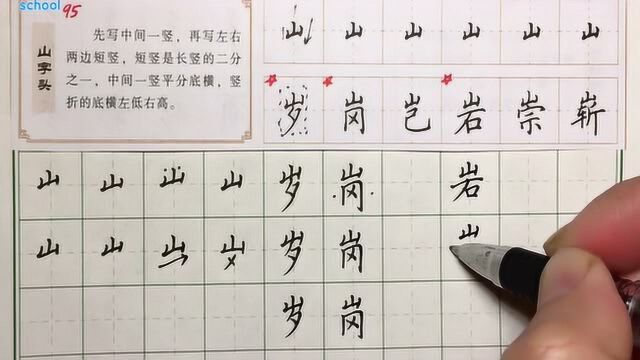 school 95
山字头
先写中间一竖，再写左右
两边短竖，短竖是长竖的二分
之一，中间一竖平分底横，竖
折的底横左低右高。
山 山 山 山 山 山
岁 岗 岂 岩 崇 崭
山 山 山 山 岁 岗 岩
山 山 山 山 岁 岗 山
岁 岗